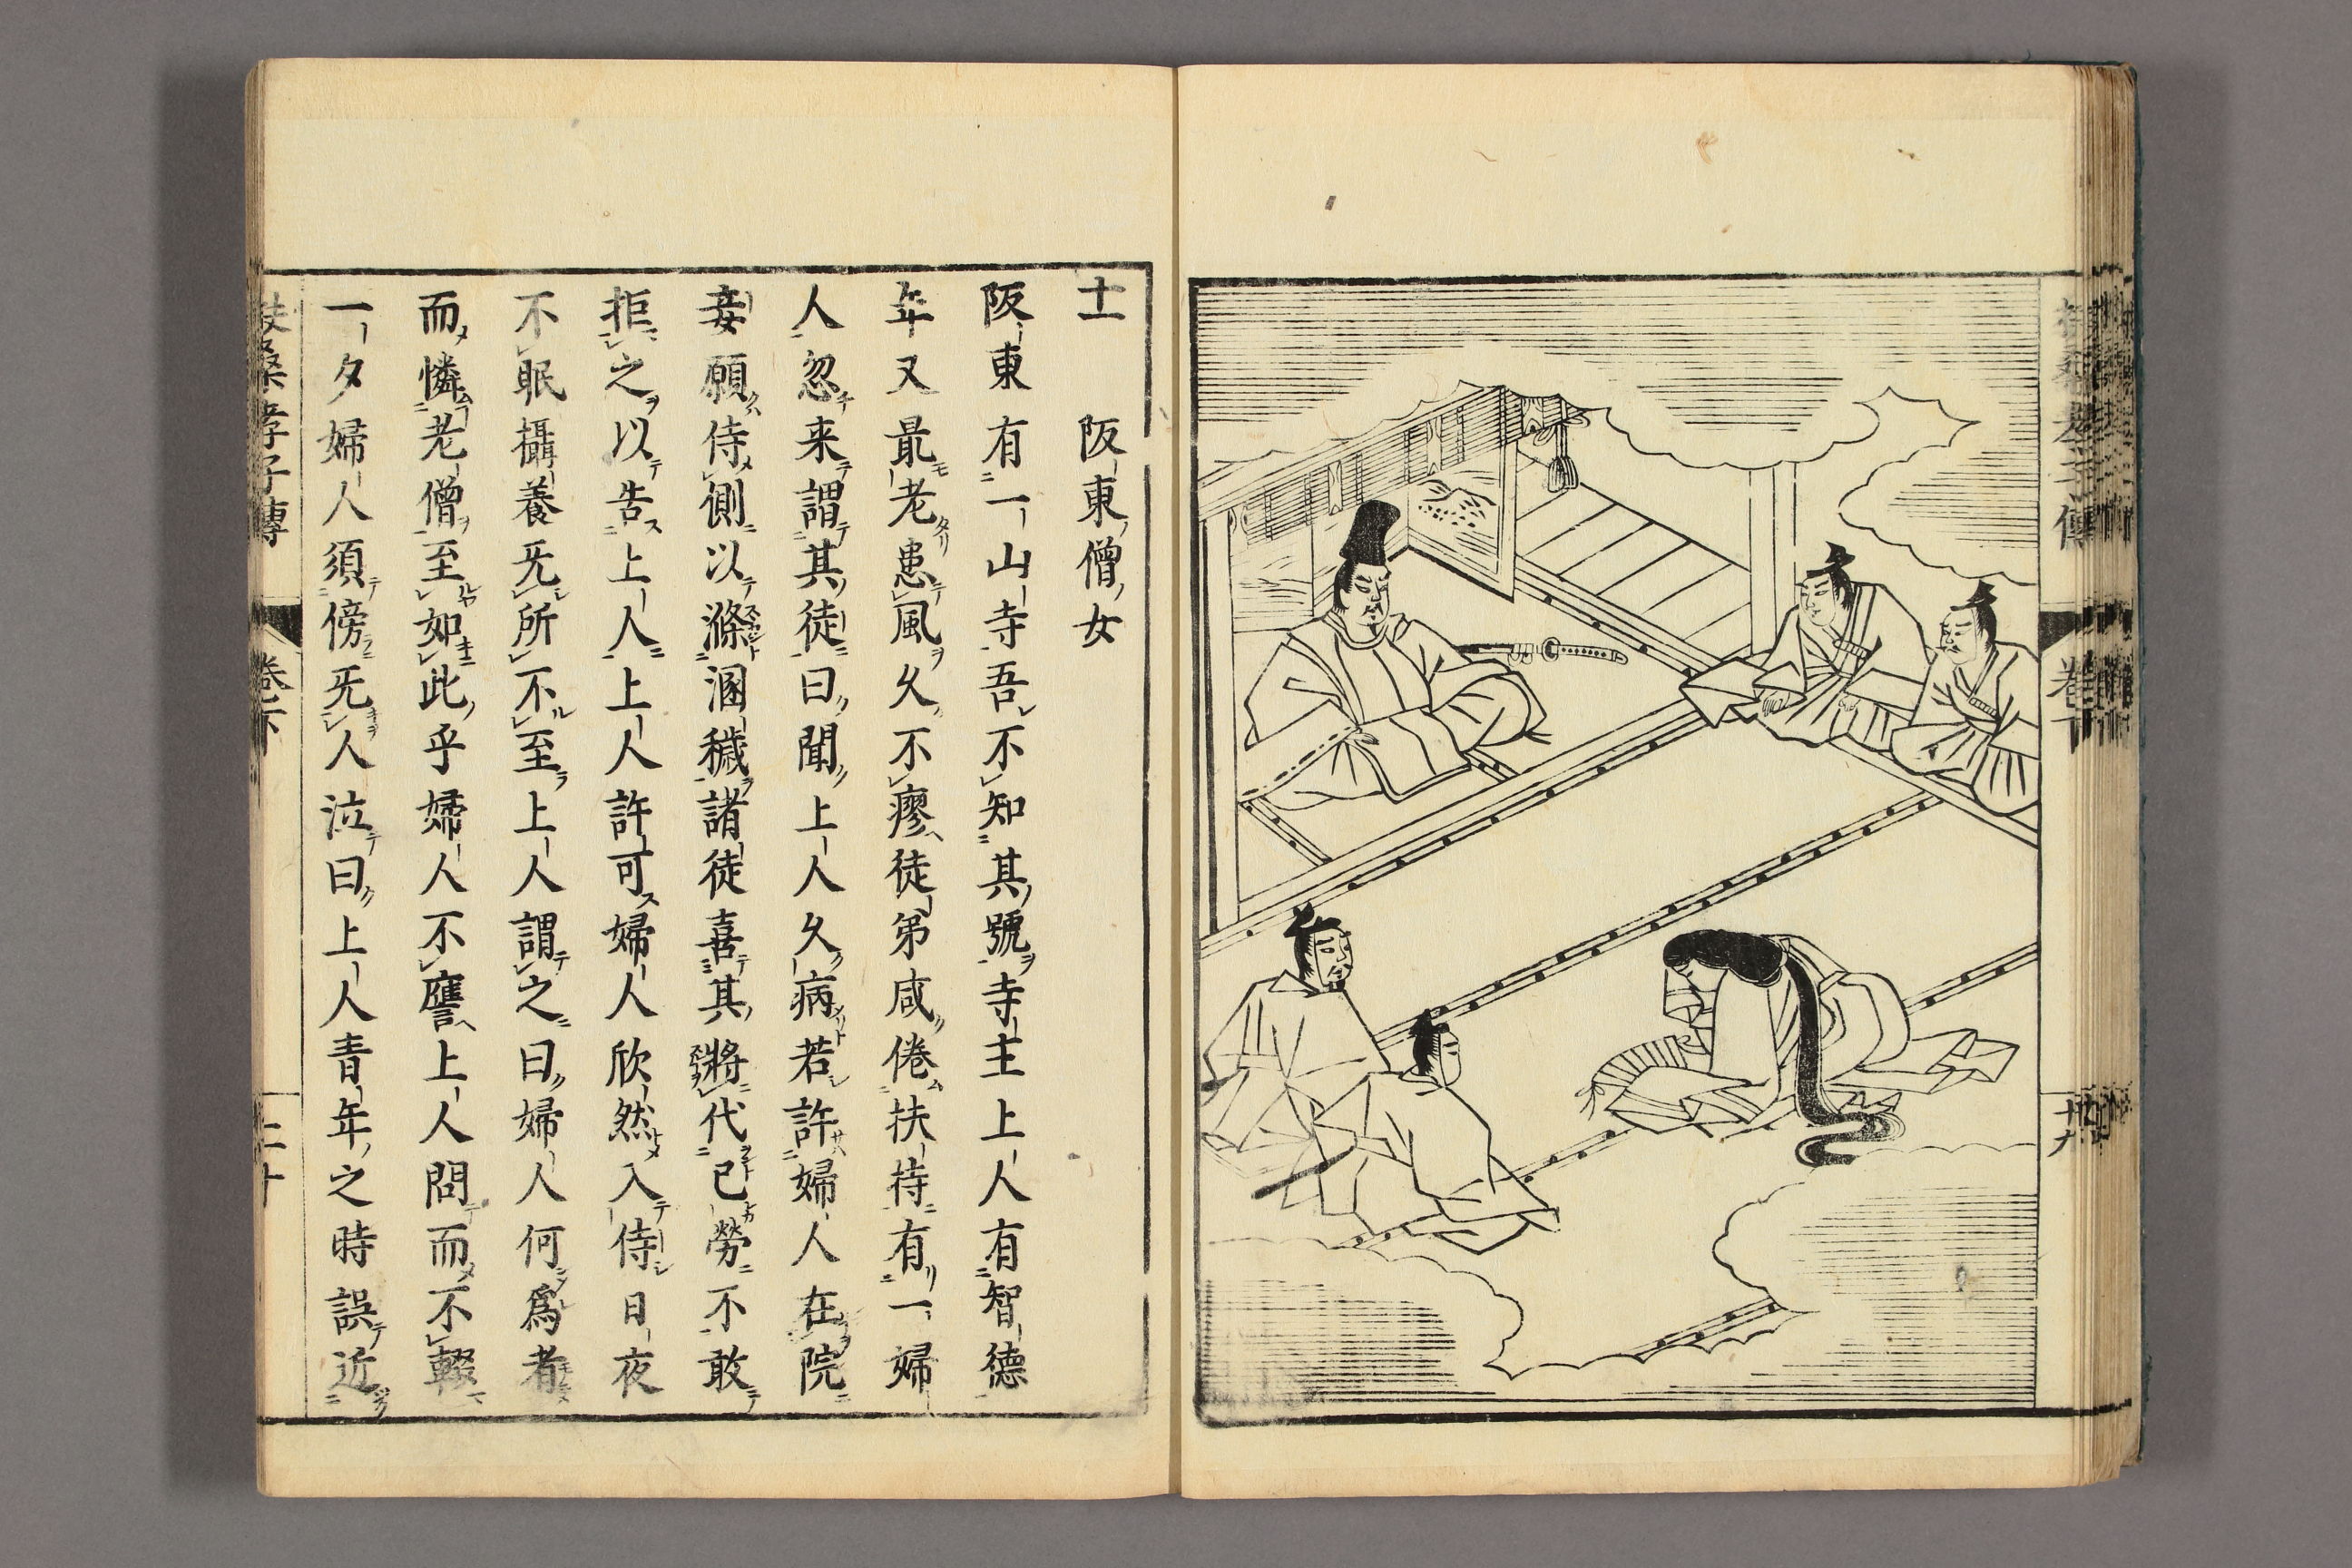 十一　阪東僧女
阪東有一山寺吾不知其號寺主上人有智德
年又最老患風久不瘳徒弟咸倦扶持有一婦
人忽来謂其徒曰聞上人久病若許婦人在院
妾願侍側以滌溷穢諸徒喜其將代己勞不敢
拒之以告上人上人許可婦人欣然入侍日夜
不眠攝養无所不至上人謂之曰婦人何爲者
而憐老僧至如此乎婦人不譍上人問而不輟
一夕婦人須傍无人泣曰上人青年之時誤近
扶桑孝子傳
卷下
二十
卷下
十九